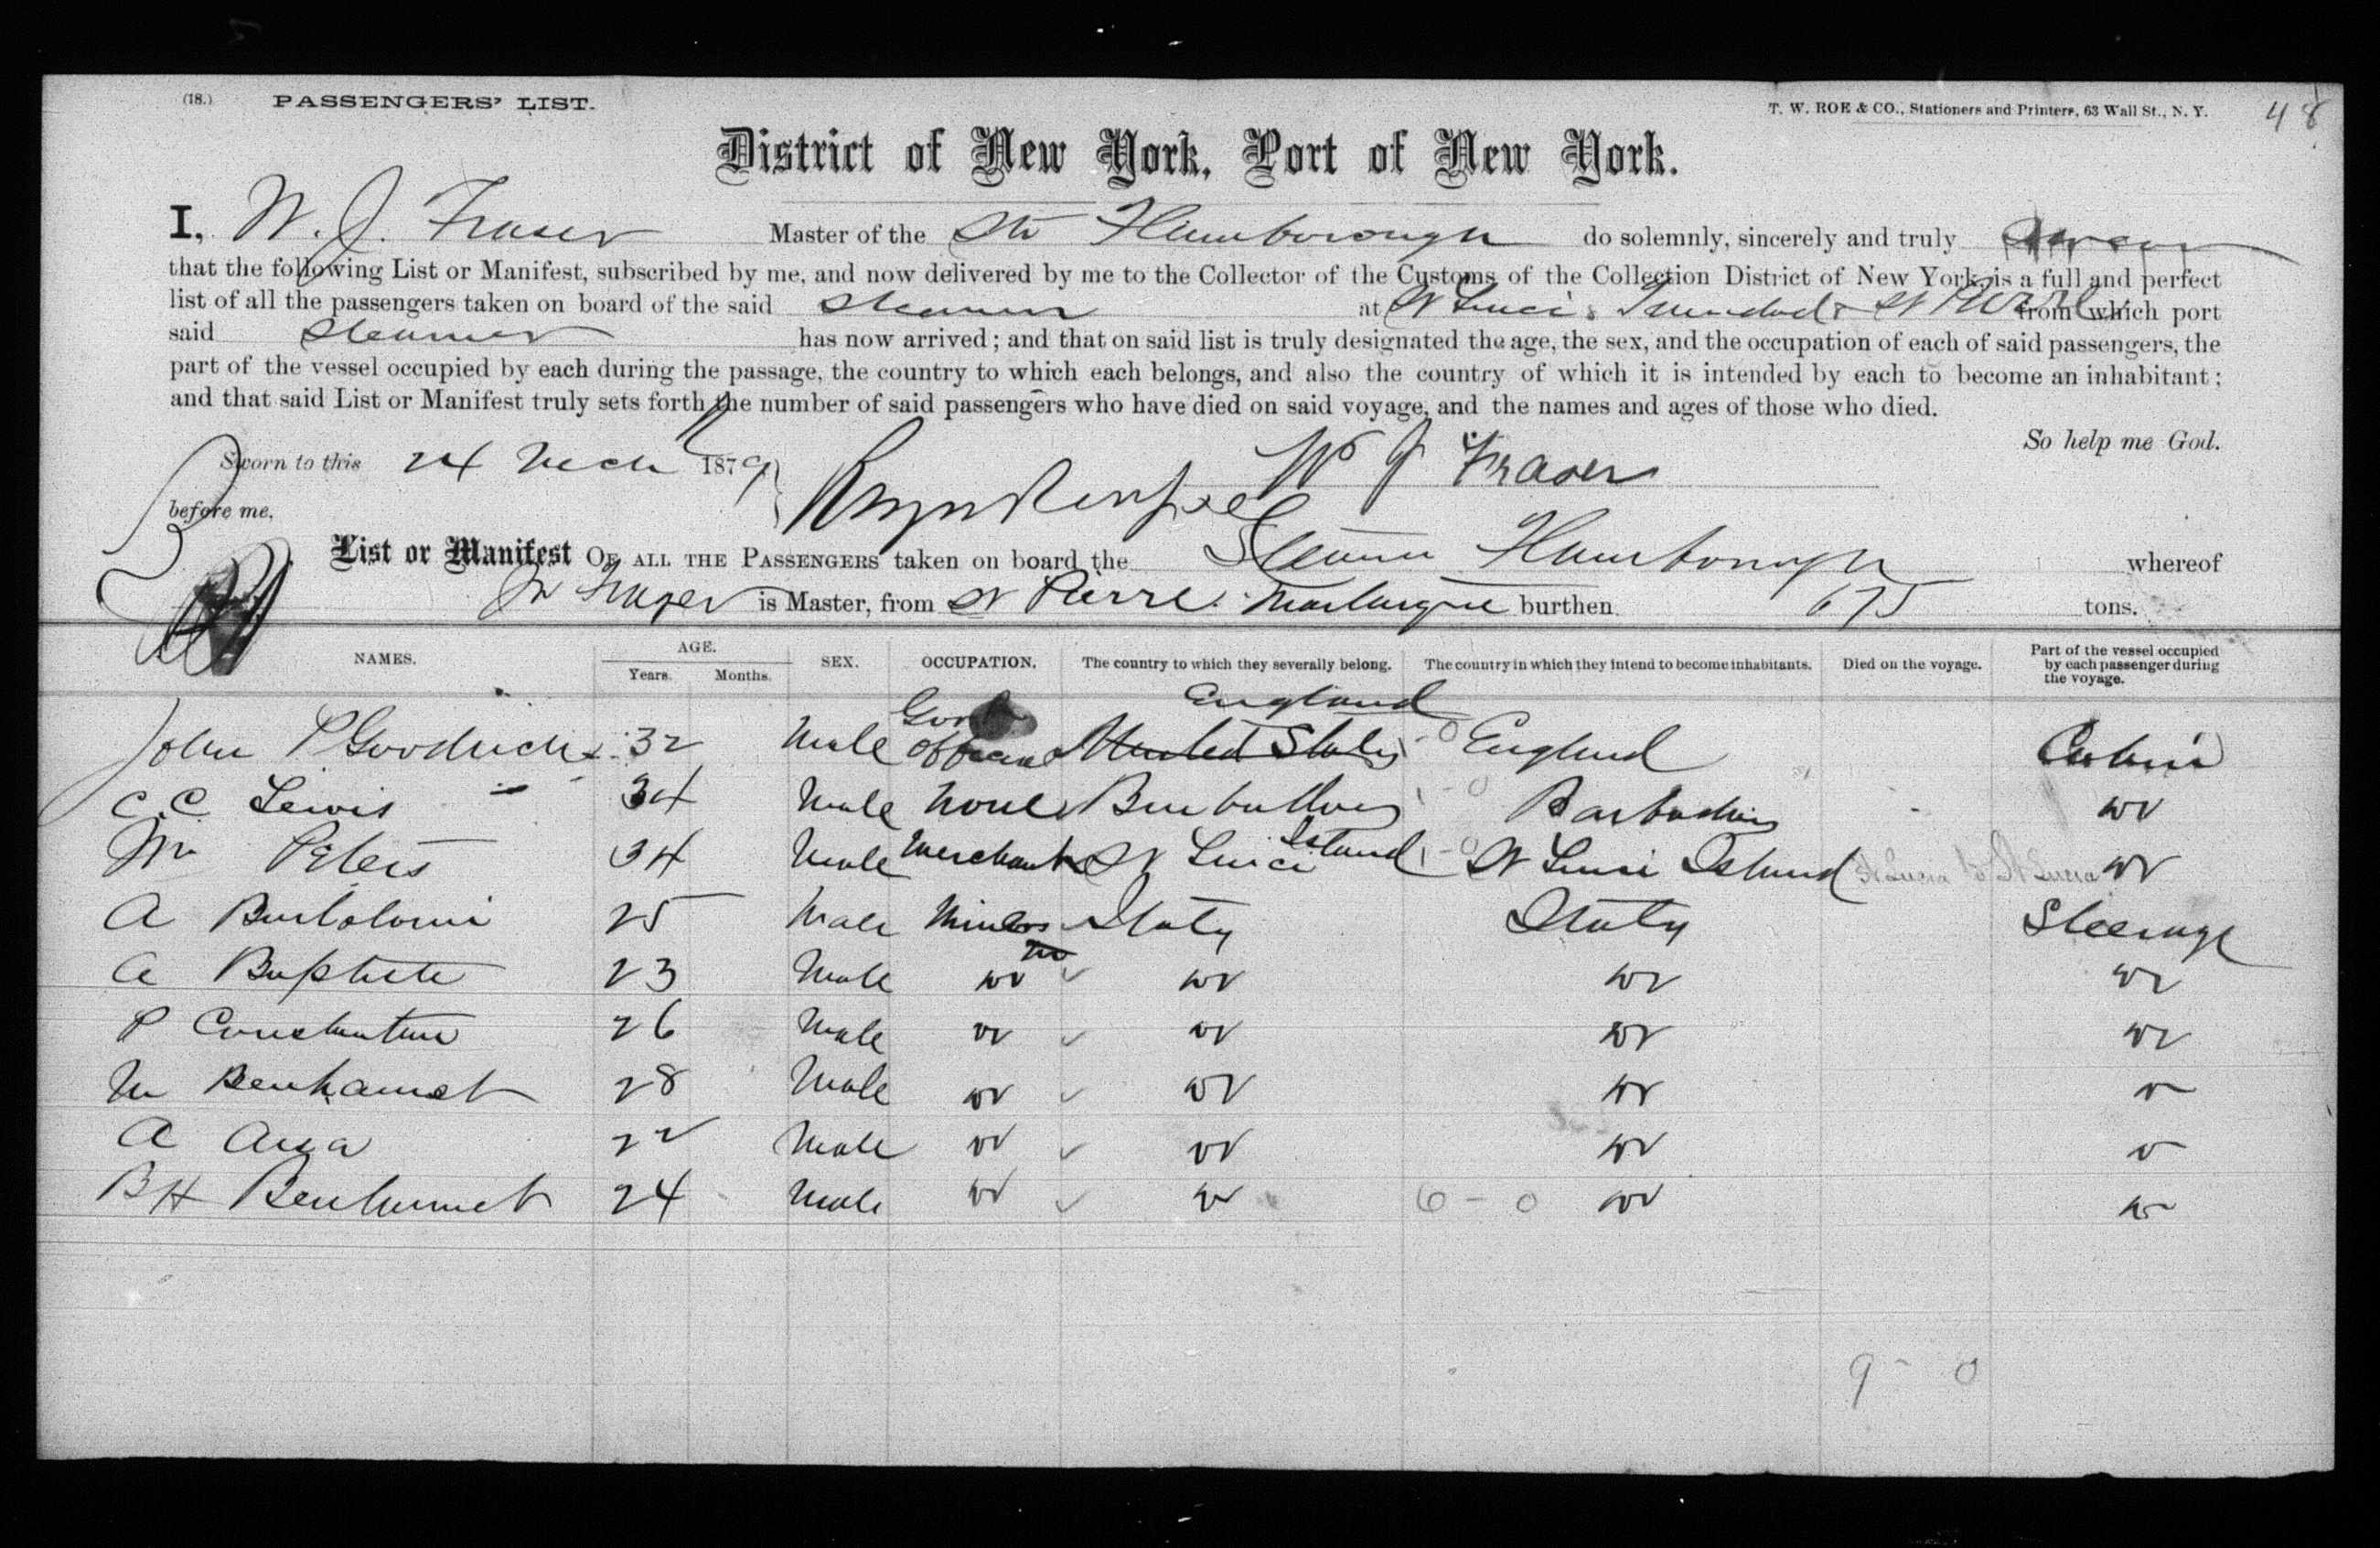 (18.) PASSENGERS' LIST. T. W. ROE & CO., Stationers and Printers, 63 Wall St., N. Y. 48
District of New York, Port of New York.
I, W. J. Fraser Master of the Str Flamborough do solemnly, sincerely and truly swear
that the following List or Manifest, subscribed by me, and now delivered by me to the Collector of the Customs of the Collection District of New York is a full and perfect
list of all the passengers taken on board of the said Steamer at St Luci, Trinidad & St Pierre from which port
said Steamer has now arrived; and that on said list is truly designated the age, the sex, and the occupation of each of said passengers, the
part of the vessel occupied by each during the passage, the country to which each belongs, and also the country of which it is intended by each to become an inhabitant;
and that said List or Manifest truly sets forth the number of said passengers who have died on said voyage, and the names and ages of those who died.
So help me God.
Sworn to this 24 Mch 1879 W J Fraser
before me,
List or Manifest OF ALL THE PASSENGERS taken on board the Steamer Flamborough whereof
Fraser is Master, from St Pierre Martinique burthen 675 tons.
NAMES. AGE. Years. Months. SEX. OCCUPATION. The country to which they severally belong. The country in which they intend to become inhabitants. Died on the voyage. Part of the vessel occupied by each passenger during the voyage.
England
John P Goodrich 32 Male Govt Official United States England Cabin
C. C. Lewis 34 Male None Barbadoes Barbadoes do
Mr Peters 34 Male Merchant St Luci Island St Luci Island St Lucia to St Lucia do
A Bartolomi 25 Male Miners Italy Italy Steerage
A Baptiste 23 Male do do do do
P Constantine 26 Male do do do do
M Benhamet 28 Male do do do do
A 22 Male do do do do
B H Benhumet 24 Male do do 6 - 0 do do
9 - 0